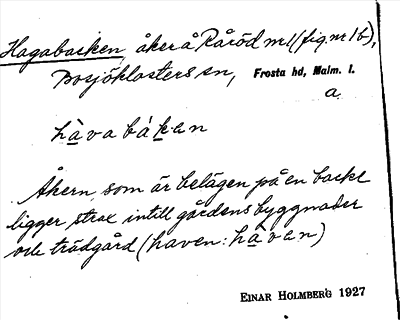 Hagabacken, åker å Råröd nr 1 (fig. nr 1 b),
Bosjöklosters sn, Frosta hd, Malm. l.
a.
hàvabákən
Åkern, som är belägen på en backe
ligger strax intill gårdens byggnader
och trädgård (haven: hàvən)
EINAR HOLMBERG 1927